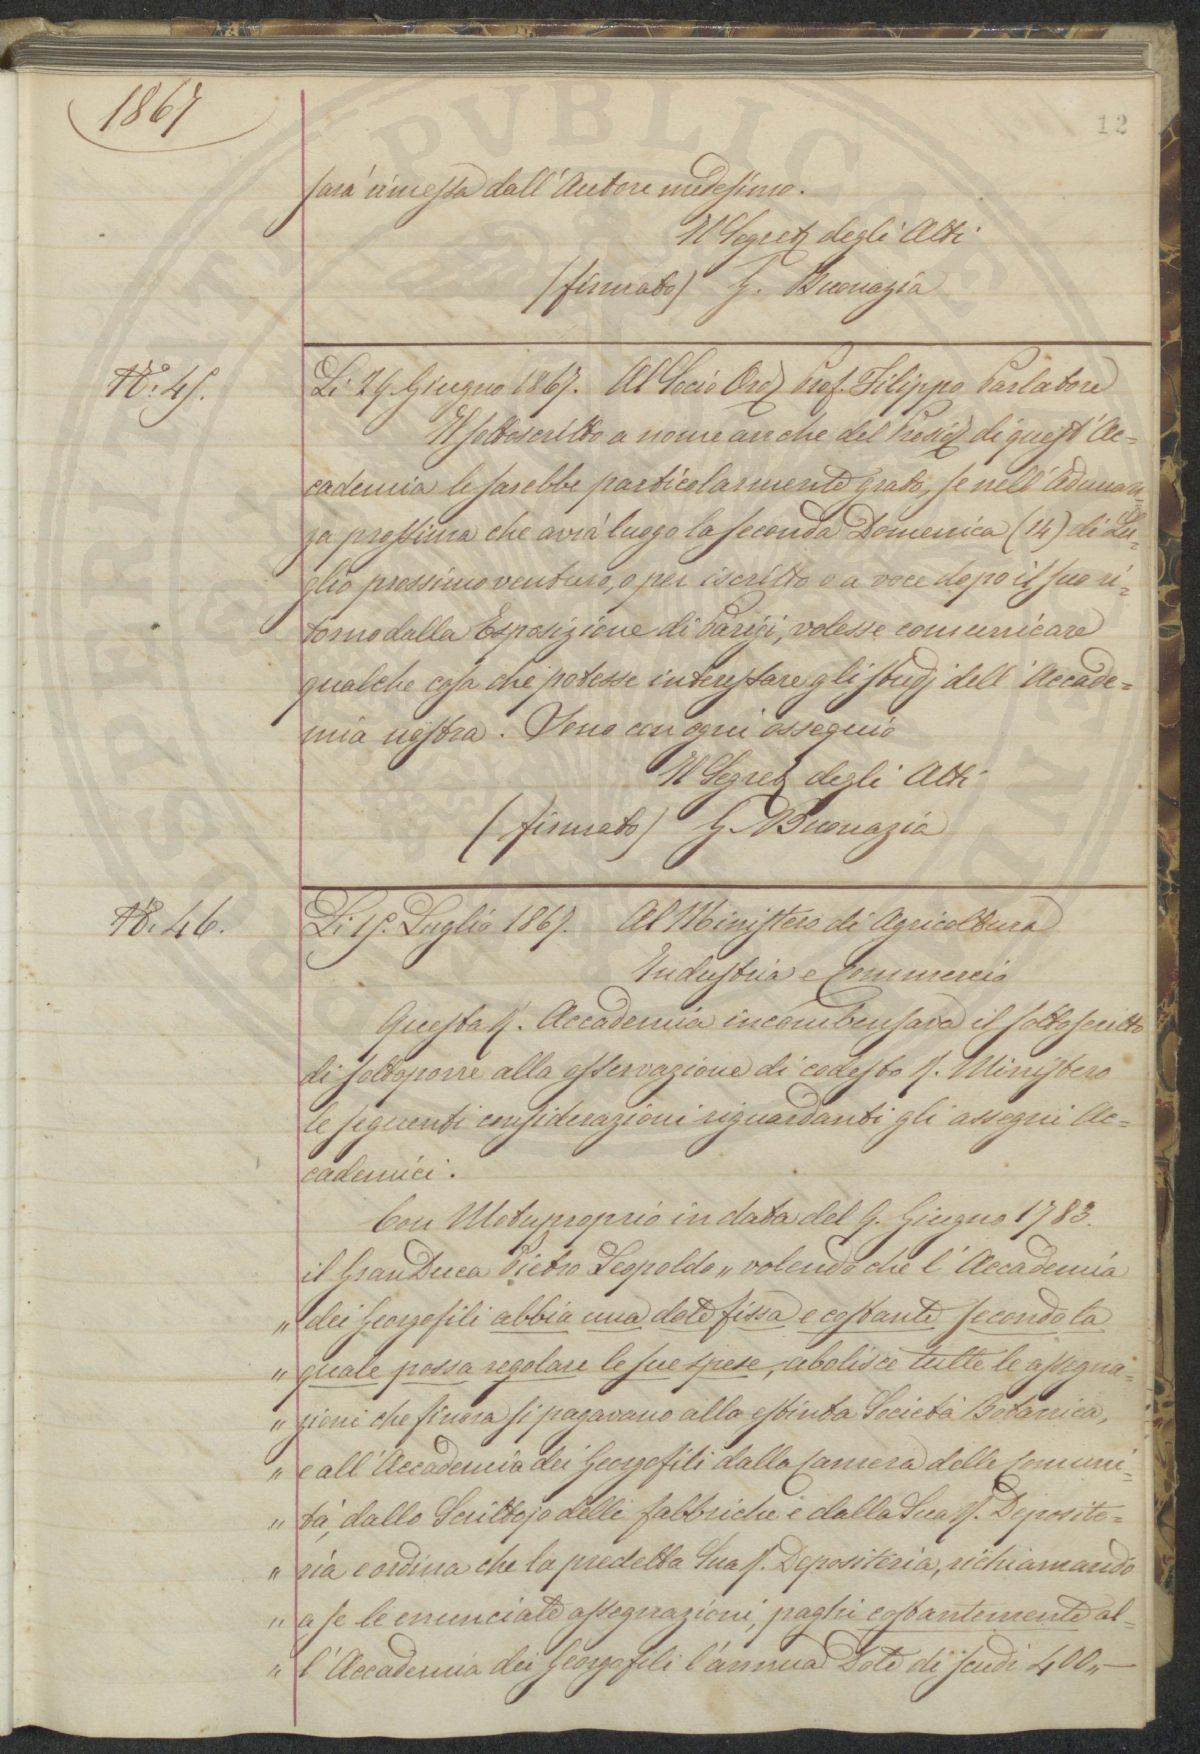 1867
12
sarà rimessa dall'Autore medesimo.
Il Segret. degli Atti
(firmato) G. Buonazia
N.° 45.
Li 24. Giugno 1867. Al Socio Ord. Prof. Filippo Parlatore
Il sottoscritto a nome anche del Presid. di quest'Ac=
cademia le sarebbe particolarmente grato, se nell'Adunan=
za prossima che avrà luogo la seconda Domenica (14) di Lu=
glio prossimo venturo, o per iscritto o a voce dopo il suo ri=
torno dalla Esposizione di Parigi, volesse comunicare
qualche cosa che potesse interessare gli studj dell'Accade=
mia nostra. Sono con ogni ossequio
Il Segret. degli Atti
(firmato) G. Buonazia
N.° 46.
Li 15. Luglio 1867. Al Ministero di Agricoltura
Industria e Commercio
Questa R. Accademia incombensava il sottoscritto
di sottoporre alla osservazione di codesto R. Ministero
le seguenti considerazioni riguardanti gli assegni Ac=
cademici.
Con Motuproprio in data del 9. Giugno 1783.
il GranDuca Pietro Leopoldo „ volendo che l'Accademia
„ dei Georgofili abbia una dote fissa e costante secondo la
„ quale possa regolare le sue spese, abolisce tutte le assegna=
„ zioni che finora si pagavano alla estinta Società Botanica,
„ e all'Accademia dei Georgofili dalla Camera delle Comuni=
„ tà, dallo Scrittojo delle fabbriche e dalla Sua R. Deposite=
„ ria e ordina che la predetta Sua R. Depositeria, richiamando
„ a se le enunciate assegnazioni, paghi costantemente al=
„ l'Accademia dei Georgofili l'annua Dote di scudi 400„—